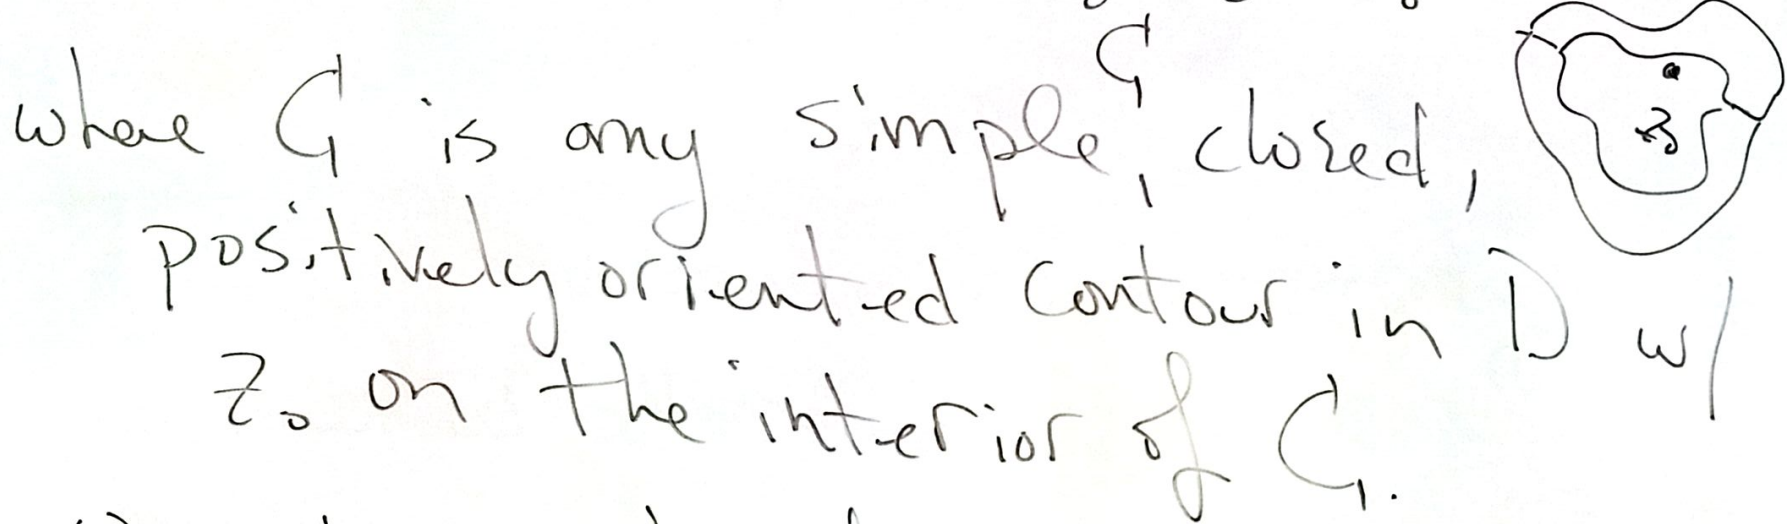 where C is any simple, closed,
positively oriented contour in D w/
z₀ on the interior of C.